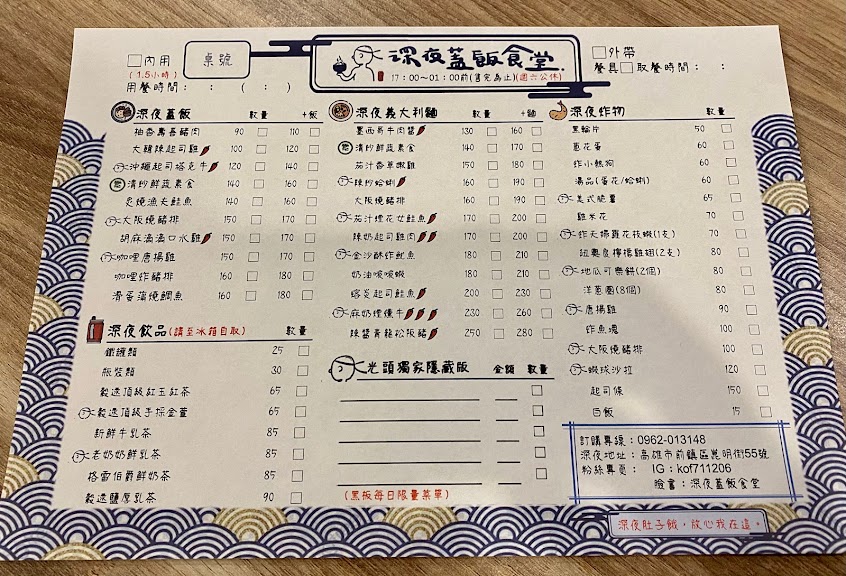 內用
(1.5小時)
用餐時間： ： ( ： )
桌號
深夜蓋飯食堂
17：00～01：00前(售完為止)(週六公休)
外帶
餐具 取餐時間： ：
深夜蓋飯 數量 +飯
柚香壽喜豬肉 90 110
大韓辣起司雞 100 120
沖繩起司塔克牛 120 140
清炒鮮蔬素食 140 160
炙燒漁夫鮭魚 140 160
大阪燒豬排 150 170
胡麻滴滴口水雞 150 170
咖哩唐揚雞 150 170
咖哩炸豬排 160 180
滑蛋蒲燒鯛魚 160 180
深夜飲品(請至冰箱自取) 數量
鐵罐類 25
瓶裝類 30
穀速頂級紅玉紅茶 65
穀速頂級手採金萱 65
新鮮牛乳茶 85
老奶奶鮮乳茶 85
格雷伯爵鮮奶茶 85
穀速鹽原乳茶 90
深夜義大利麵 數量 +麵
墨西哥牛肉醬 130 160
清炒鮮蔬素食 140 170
茄汁香草嫩雞 150 180
辣炒蛤蜊 160 190
大阪燒豬排 160 190
茄汁煙花女鮭魚 170 200
辣奶起司雞肉 170 200
金沙酥炸魷魚 180 210
奶油嗳嗳蝦 180 210
熔炎起司鮭魚 200 230
麻奶煙燻牛 230 260
辣醬青龍松阪豬 250 280
光頭獨家隱藏版 金額 數量
(黑板每日限量菜單)
深夜炸物 數量
黑輪片 50
蔥花蛋 60
炸小熱狗 60
湯品(蛋花/蛤蜊) 60
美式脆薯 65
雞米花 70
炸天婦羅花枝蝦(1支) 70
紐奧良檸檬雞翅(2支) 80
地瓜可樂餅(2個) 80
洋蔥圈(8個) 80
唐揚雞 90
炸魚塊 100
大阪燒豬排 100
蝦球沙拉 120
起司條 150
白飯 15
訂購專線：0962-013148
深夜地址：高雄市前鎮區崑明街55號
粉絲專頁： IG：kof711206
臉書：深夜蓋飯食堂
深夜肚子餓，放心我在這。